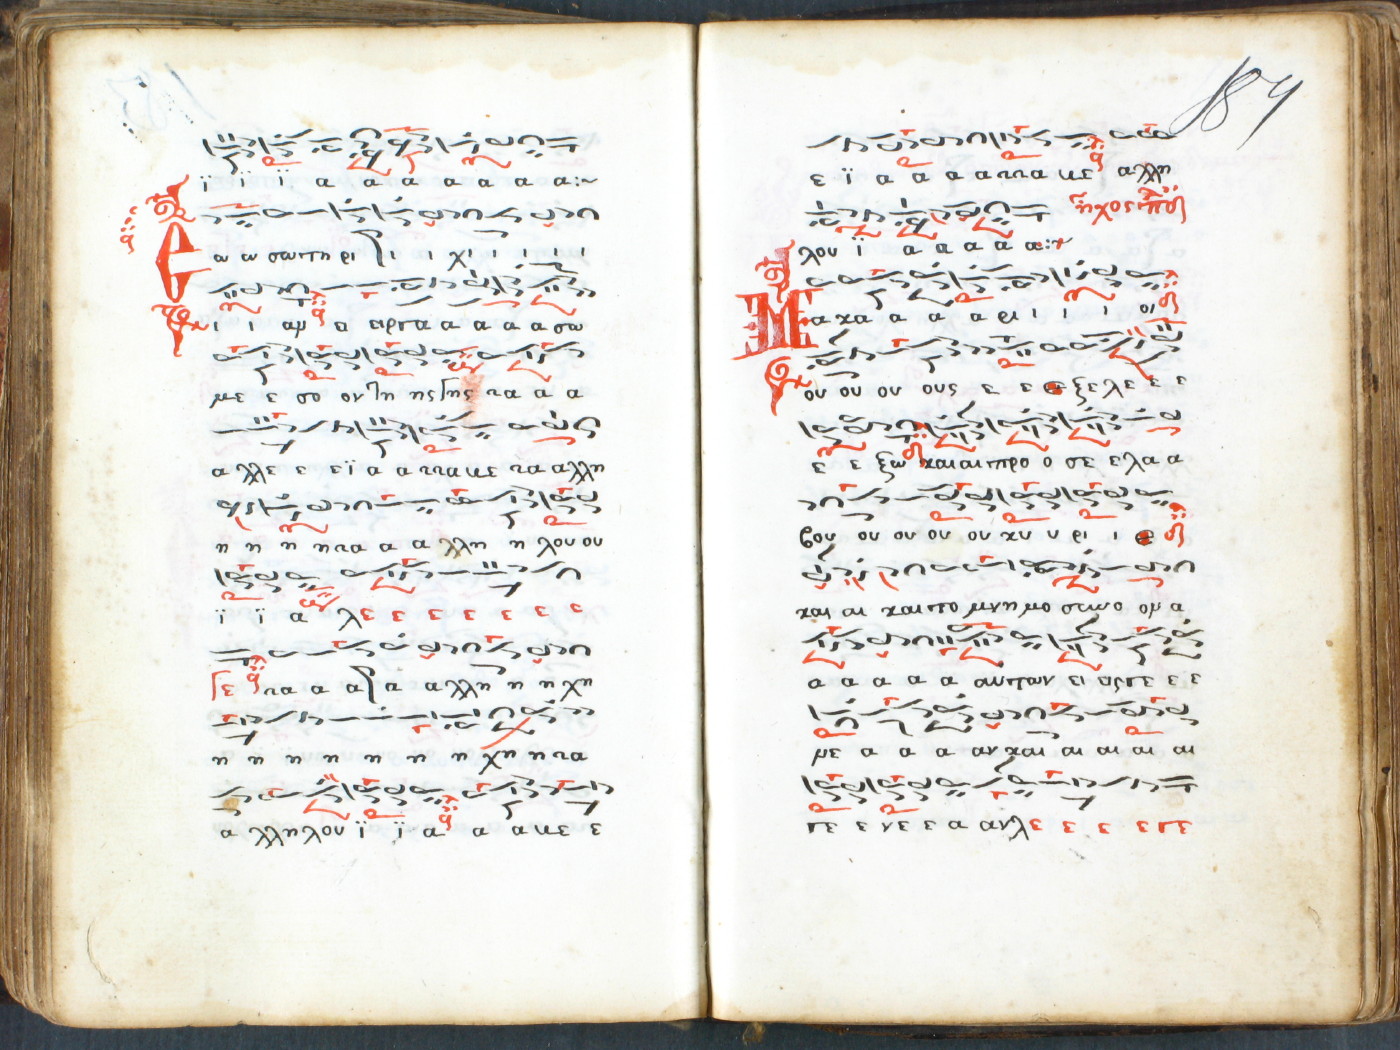 ϊ ϊ ϊ α α α α α α α :~
ω ω σωτη ρι ι χι ι ι ι
ι ι αμ α εργα α α α α σω
με ε σο ον γης γης τα α α
αλλε ε εϊα α ταμε τα αλλη
η η η ητα α α λλη η λου ου
ϊ ϊ α λε ε ε ε ε ε ε
γε τα α α α αλλη η η χη
η η η η η η η χη η τα
α λληλου ϊ ϊ α α αμε ε
184
ε ϊ α α α α ταμε αλλη
ηχος πδ
λου ϊ α α α α α :~
Μ α κα α α α ρι ι ι ι οι
ου ου ου ους ε ε ε ξελε ε ε
ε ε ξω και αι προ ο σε ελα α
βου ου ου ου ου κυ υ ρι ι ε
και αι και το μνημο συνο ομ α
α α α α α αυτων ει εις γε ε ε
με α α α αν και αι αι αι αι
γε ε νε ε α ανλε ε ε ε ε γε